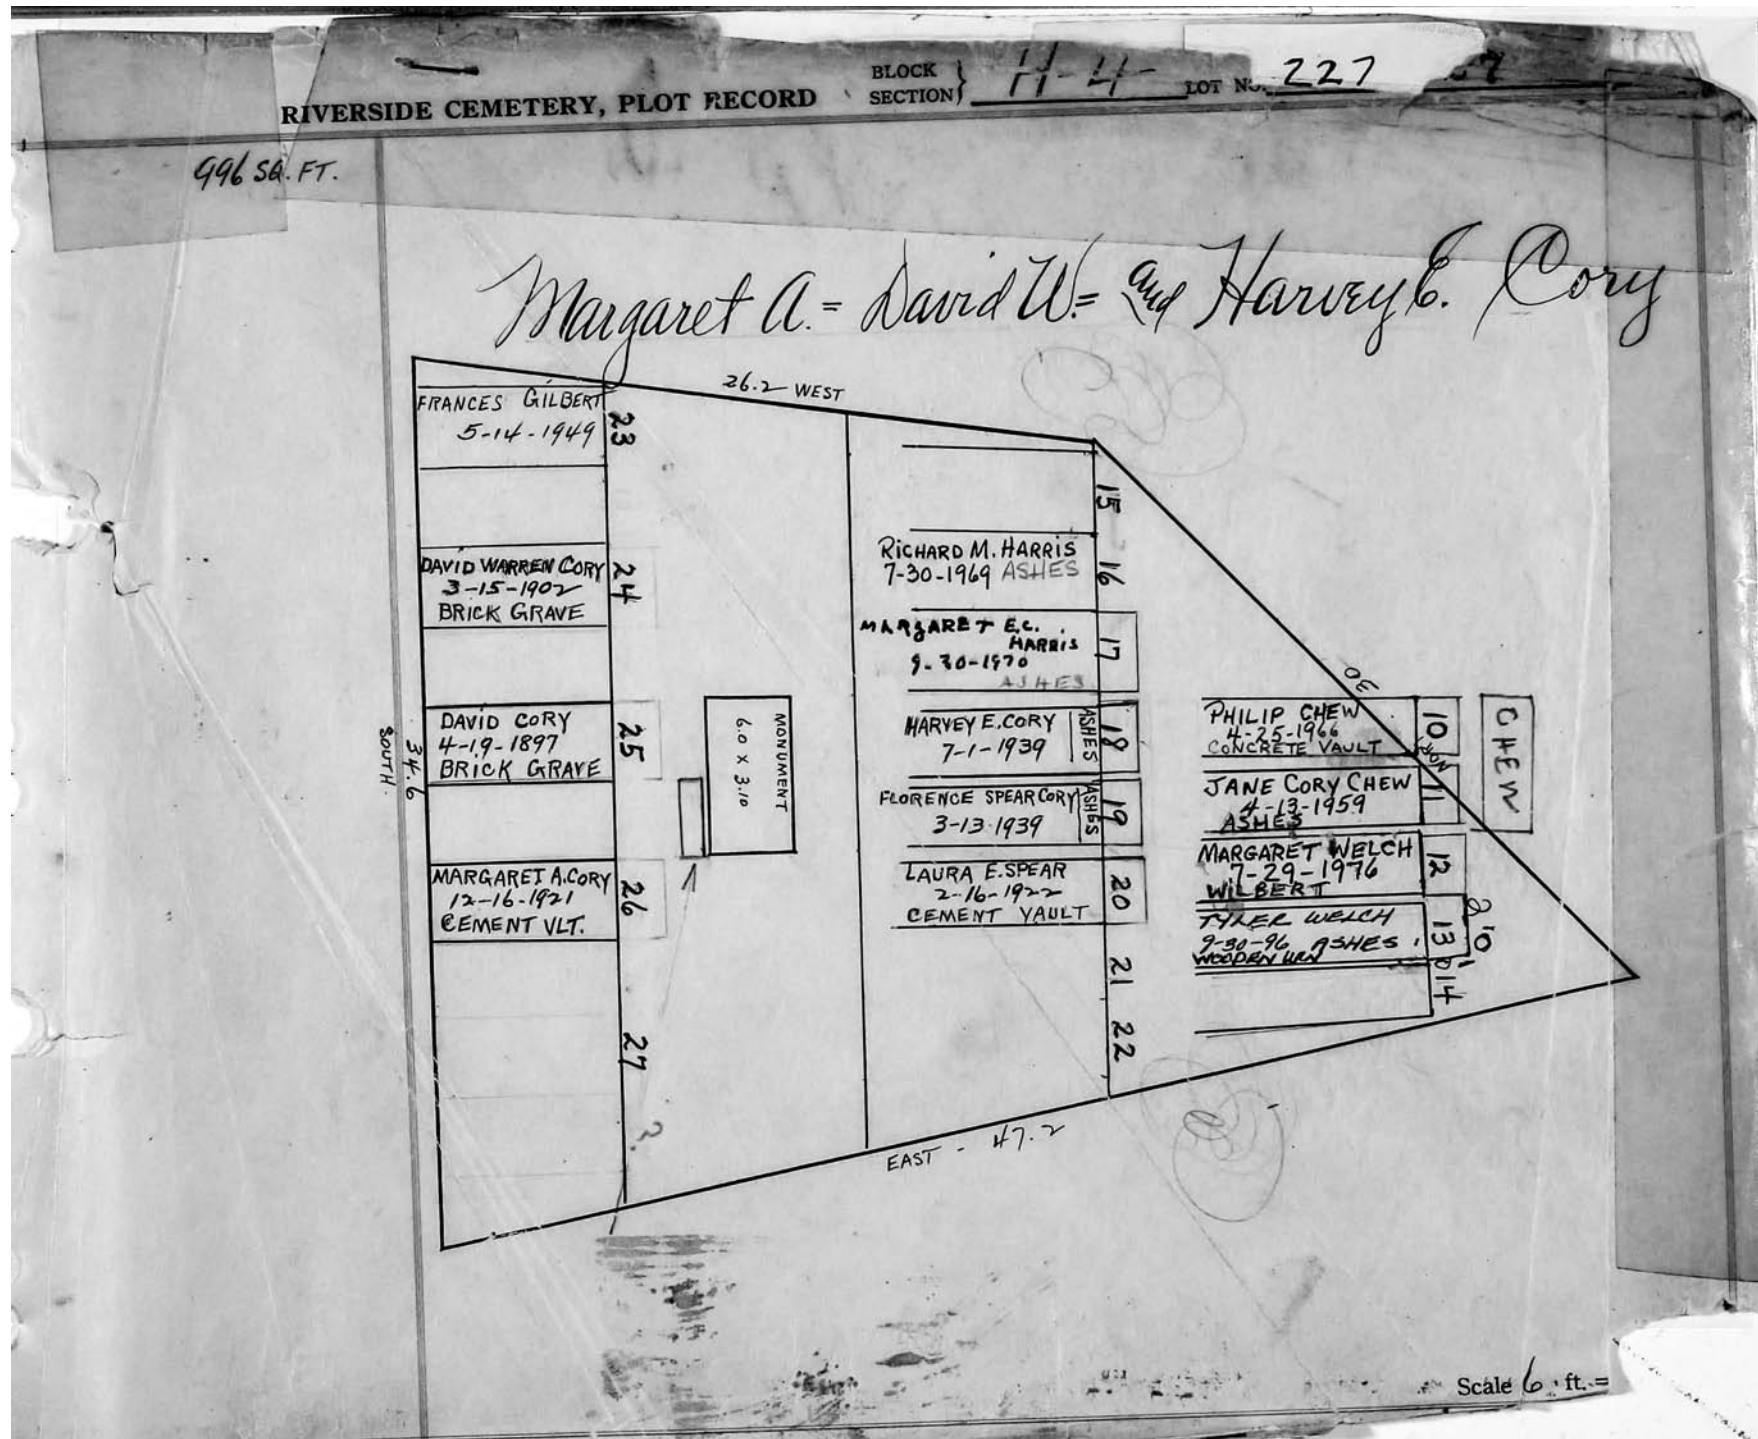 RIVERSIDE CEMETERY, PLOT RECORD
BLOCK
SECTION
H-4
LOT NO. 227
996 SQ. FT.
Margaret A. = David W. = and Harvey E. Cory
26.2 WEST
FRANCES GILBERT
5-14-1949
23
DAVID WARREN CORY
3-15-1902
BRICK GRAVE
24
DAVID CORY
4-19-1897
BRICK GRAVE
25
MARGARET A. CORY
12-16-1921
CEMENT VLT.
26
27
?
SOUTH
34.6
MONUMENT
6.0 X 3.10
15
RICHARD M. HARRIS
7-30-1969 ASHES
16
MARGARET E.C.
HARRIS
9-30-1970
ASHES
17
HARVEY E. CORY
7-1-1939
ASHES
18
FLORENCE SPEAR CORY
3-13-1939
ASHES
19
LAURA E. SPEAR
2-16-1922
CEMENT VAULT
20
21
22
30
PHILIP CHEW
4-25-1966
CONCRETE VAULT
10
JANE CORY CHEW
4-13-1959
ASHES
11
MARGARET WELCH
7-29-1976
WILBERT
12
TYLER WELCH
9-30-96 ASHES
WOODEN URN
13
14
CHEW
EAST - 47.2
Scale 6 ft. =